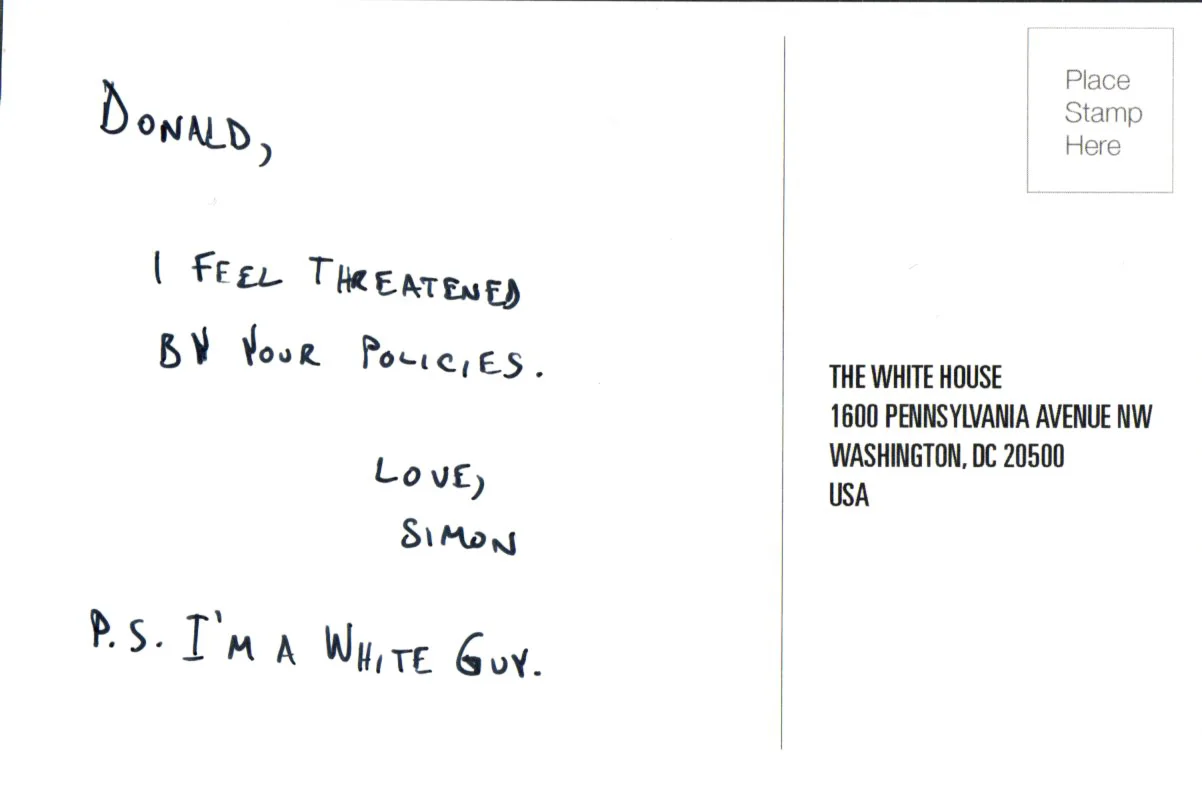 DONALD,
I FEEL THREATENED
BY YOUR POLICIES.
LOVE,
SIMON
P.S. I'M A WHITE GUY.
Place
Stamp
Here
THE WHITE HOUSE
1600 PENNSYLVANIA AVENUE NW
WASHINGTON, DC 20500
USA